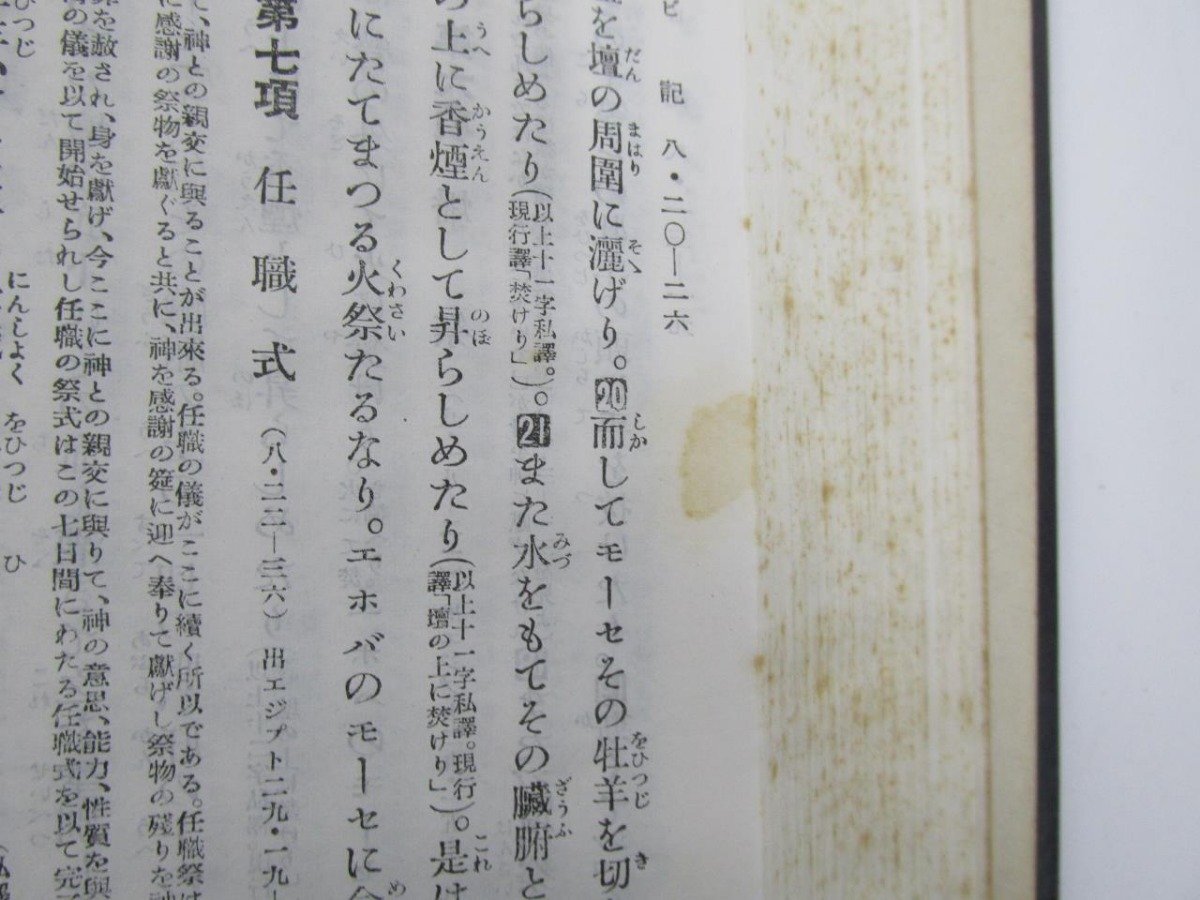 記 八・二〇—二六
を壇の周圍に灑げり。20而してモーセその牡羊を切
らしめたり(以上十一字私譯。現行譯「焚けり」)。21また水をもてその臓腑と
上に香煙として昇らしめたり(以上十一字私譯。現行譯「壇の上に焚けり」)。是は
にたてまつる火祭たるなり。エホバのモーセに
第七項 任職式 (八・二二—三六) 出エジプト二九・一九—
て、神との親交に與ることが出來る。任職の儀がここに續く所以である。任職祭は
に感謝の祭物を獻ぐると共に、神を感謝の筵に迎へ奉りて獻げし祭物の殘りを
を赦され、身を獻げ、今ここに神との親交に與りて、神の意思、能力、性質を與
の儀を以て開始せられし任職の祭式はこの七日間にわたる任職式を以て完